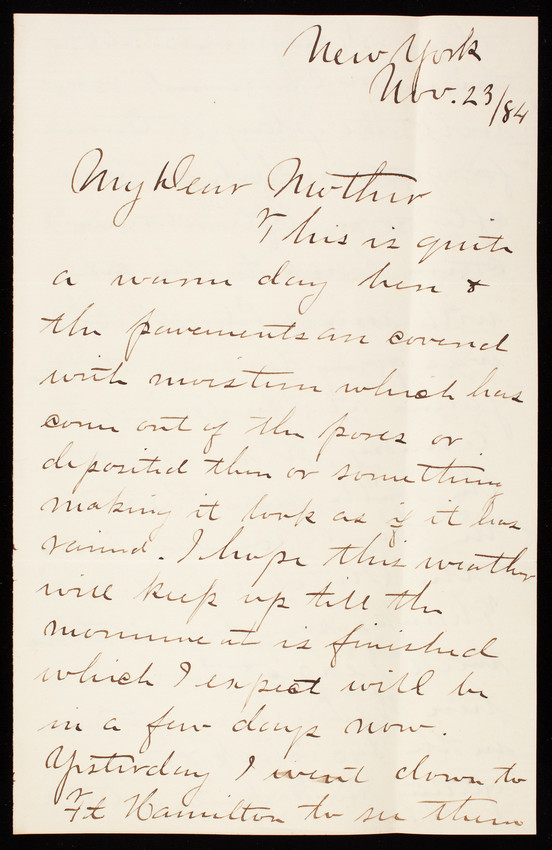 New York
Nov. 23/84
My Dear Mother
This is quite
a warm day here &
the pavements are covered
with moisture which has
come out of the pores or
deposited then or something
making it look as if it has
rained. I hope this weather
will keep up till the
monument is finished
which I expect will be
in a few days now.
Yesterday I went down to
Ft Hamilton to see them